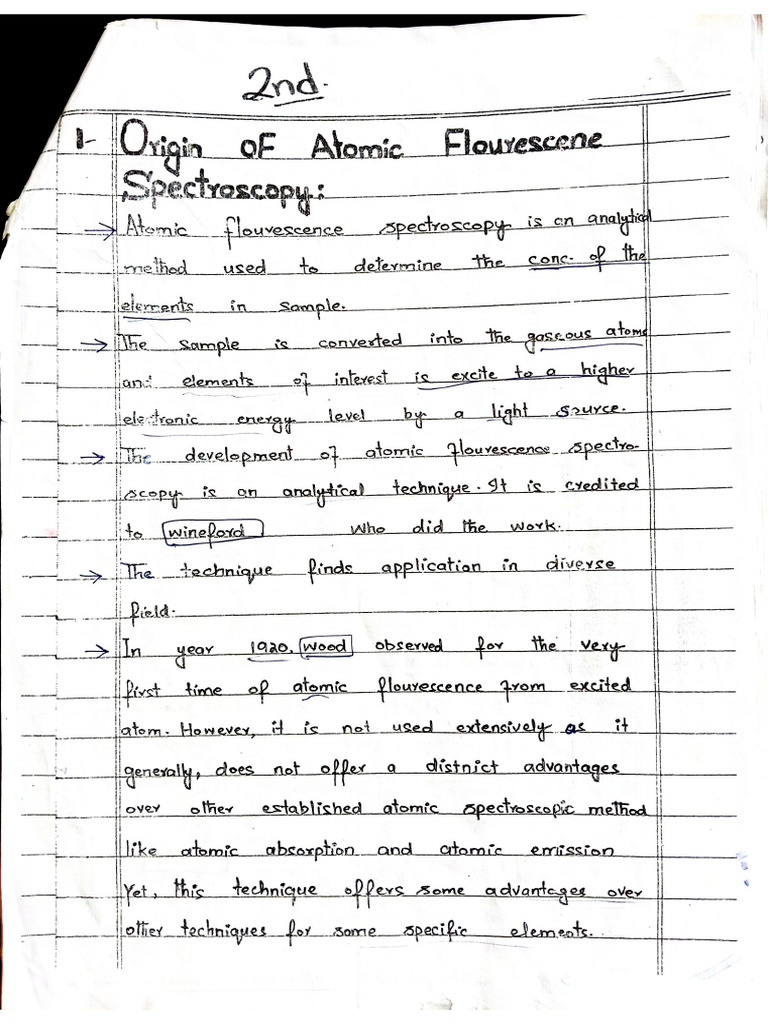 2nd.
1- Origin OF Atomic Flourescene
Spectroscopy:
→ Atomic flourescence spectroscopy is an analytical
method used to determine the conc. of the
elements in sample.
→ The sample is converted into the gaseous atoms
and elements of interest is excite to a higher
electronic energy level by a light source.
→ The development of atomic flourescence spectro-
scopy is an analytical technique. It is credited
to wineford who did the work.
→ The technique finds application in diverse
field.
→ In year 1920, wood observed for the very
first time of atomic flourescence from excited
atom. However, it is not used extensively as it
generally, does not offer a district advantages
over other established atomic spectroscopic method
like atomic absorption and atomic emission
Yet, this technique offers some advantages over
other techniques for some specific elements.